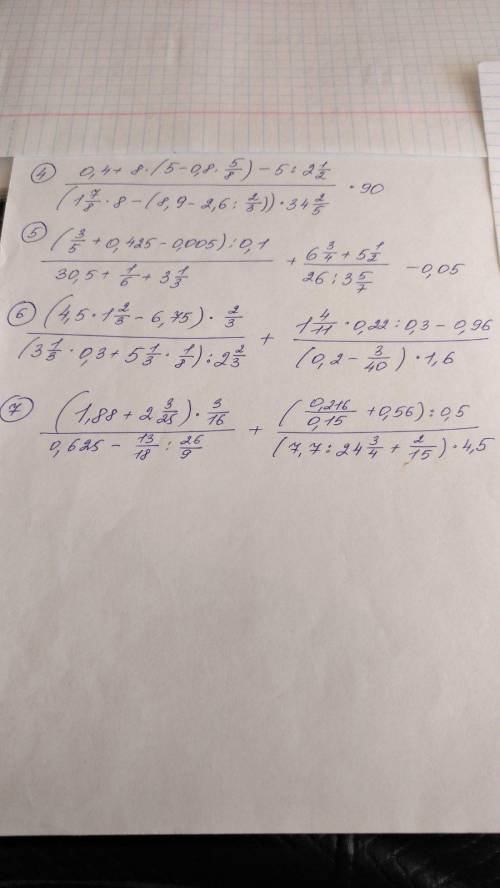 ④ (0,4 + 8 · (5 − 0,8 · 5/8) − 5 : 2 1/2) / ((1 7/8 · 8 − (8,9 − 2,6 : 2/3)) · 34 2/5) · 90
⑤ ((3/5 + 0,425 − 0,005) : 0,1) / (30,5 + 1/6 + 3 1/3) + (6 3/4 + 5 1/2) / (26 : 3 5/7) − 0,05
⑥ ((4,5 · 1 2/3 − 6,75) · 2/3) / ((3 1/3 · 0,3 + 5 1/3 · 1/8) : 2 2/3) + (1 4/11 · 0,22 : 0,3 − 0,96) / ((0,2 − 3/40) · 1,6)
⑦ ((1,88 + 2 3/25) · 3/16) / (0,625 − 13/18 : 26/9) + ((0,216/0,15 + 0,56) : 0,5) / ((7,7 : 24 3/4 + 2/15) · 4,5)